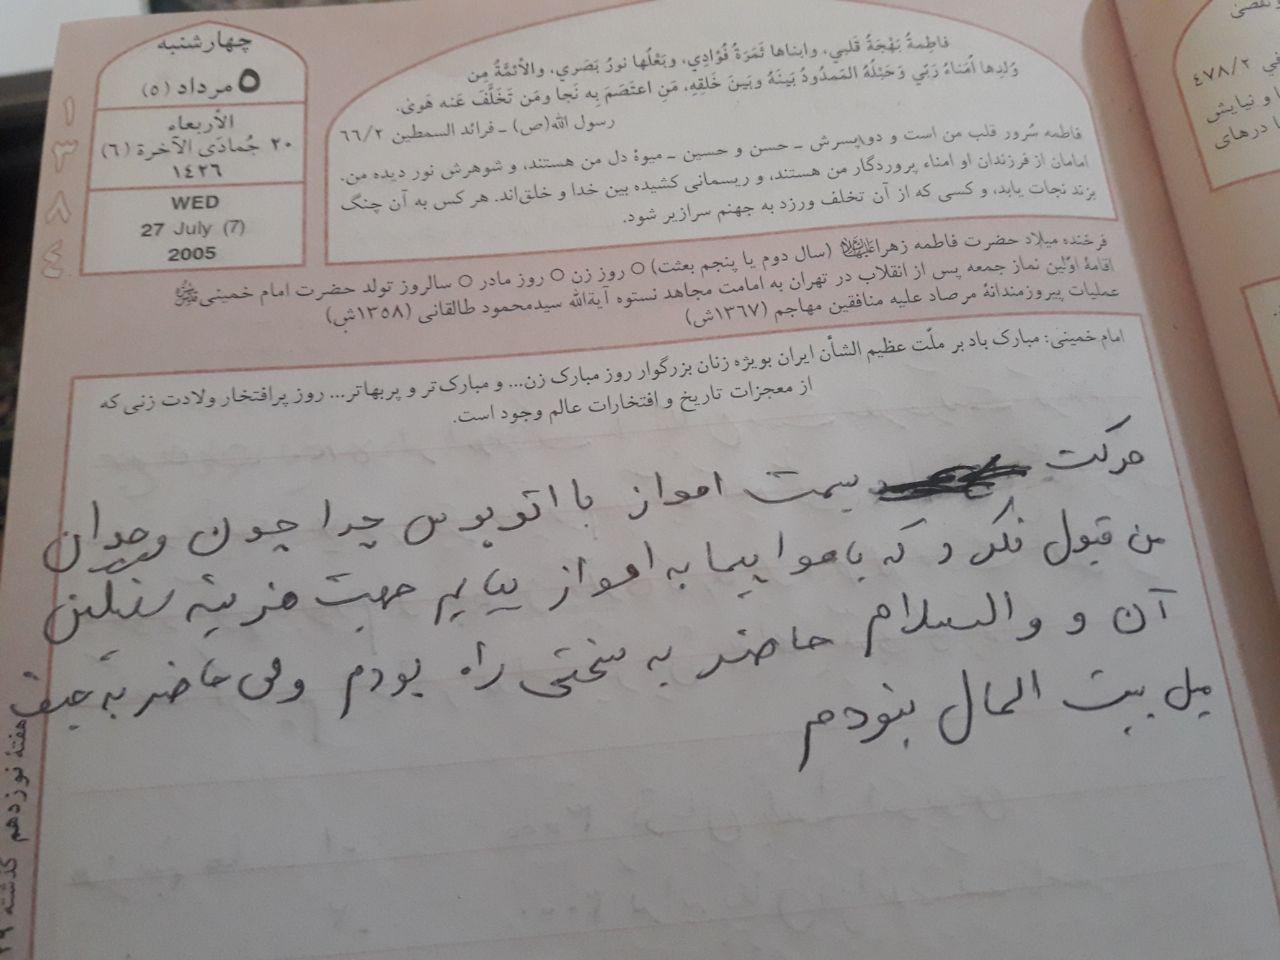 چهارشنبه
۵ مرداد (۵)
الأربعاء
۲۰ جُمادَی الآخرة (۶)
۱۴۲۶
WED
27 July (7)
2005
۱
۳
۸
۴
فاطِمةُ بَهْجَةُ قَلبِي، وابناها ثَمَرَةُ فُؤادِي، وبَعْلُها نورُ بَصَري، والأئمَّةُ مِن
وُلدِها اُمَناءُ رَبِّي وَحَبْلُهُ المَمدُودُ بَینَهُ وبَینَ خَلقِهِ، مَنِ اعتَصَمَ بِه نَجا ومَن تَخَلَّفَ عَنه هَویٰ.
رسول الله(ص) ـ فرائد السمطین ۶۶/۲
فاطمه سُرور قلب من است و دو پسرش ـ حسن و حسین ـ میوهٔ دل من هستند، و شوهرش نور دیده من.
امامان از فرزندان او امناء پروردگار من هستند، و ریسمانی کشیده بین خدا و خلق‌اند. هر کس به آن چنگ
بزند نجات یابد، و کسی که از آن تخلف ورزد به جهنم سرازیر شود.
فرخنده میلاد حضرت فاطمه زهرا (سال دوم یا پنجم بعثت) ○ روز زن ○ روز مادر ○ سالروز تولد حضرت امام خمینی
اقامهٔ اوّلین نماز جمعه پس از انقلاب در تهران به امامت مجاهد نستوه آیة‌الله سیدمحمود طالقانی (۱۳۵۸ش)
عملیات پیروزمندانهٔ مرصاد علیه منافقین مهاجم (۱۳۶۷ش)
امام خمینی: مبارک باد بر ملّت عظیم الشأن ایران بویژه زنان بزرگوار روز مبارک زن... و مبارک‌تر و پربهاتر... روز پرافتخار ولادت زنی که
از معجزات تاریخ و افتخارات عالم وجود است.
حرکت بسمت اهواز با اتوبوس چرا چون وجدان
من قبول نکرد که با هوا پیما به اهواز بیایم جهت هزینه سنگین
آن و والسلام حاضر به سختی راه بودم ولی حاضر به حیف
میل بیت المال نبودم
هفتهٔ نوزدهم گذشته
۴۷۸/۲
و نیایش
درهای